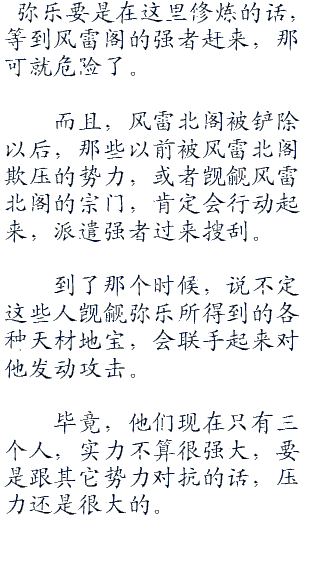 弥乐要是在这里修炼的话，
等到风雷阁的强者赶来，那
可就危险了。
而且，风雷北阁被铲除
以后，那些以前被风雷北阁
欺压的势力，或者觊觎风雷
北阁的宗门，肯定会行动起
来，派遣强者过来搜刮。
到了那个时候，说不定
这些人觊觎弥乐所得到的各
种天材地宝，会联手起来对
他发动攻击。
毕竟，他们现在只有三
个人，实力不算很强大，要
是跟其它势力对抗的话，压
力还是很大的。